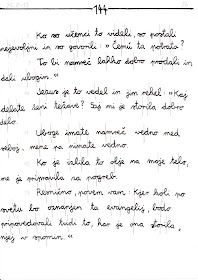 144
Ko so učenci to videli, so postali
nejevoljni in so govorili: » Čemu ta potrata?
To bi namreč lahko drago prodali in
dali ubogim.«
Jezus je to vedel in jim rekel: » Kaj
delate ženi težave? Saj mi je storila dobro
delo.
Uboge imate namreč vedno med
seboj, mene pa nimate vedno.
Ko je izlila to olje na moje telo,
me je pripravila za pogreb.
Resnično, povem vam: Kjer koli po
svetu bo oznanjen ta evangelij, bodo
pripovedovali tudi to, kar je ona storila,
njej v spomin.«